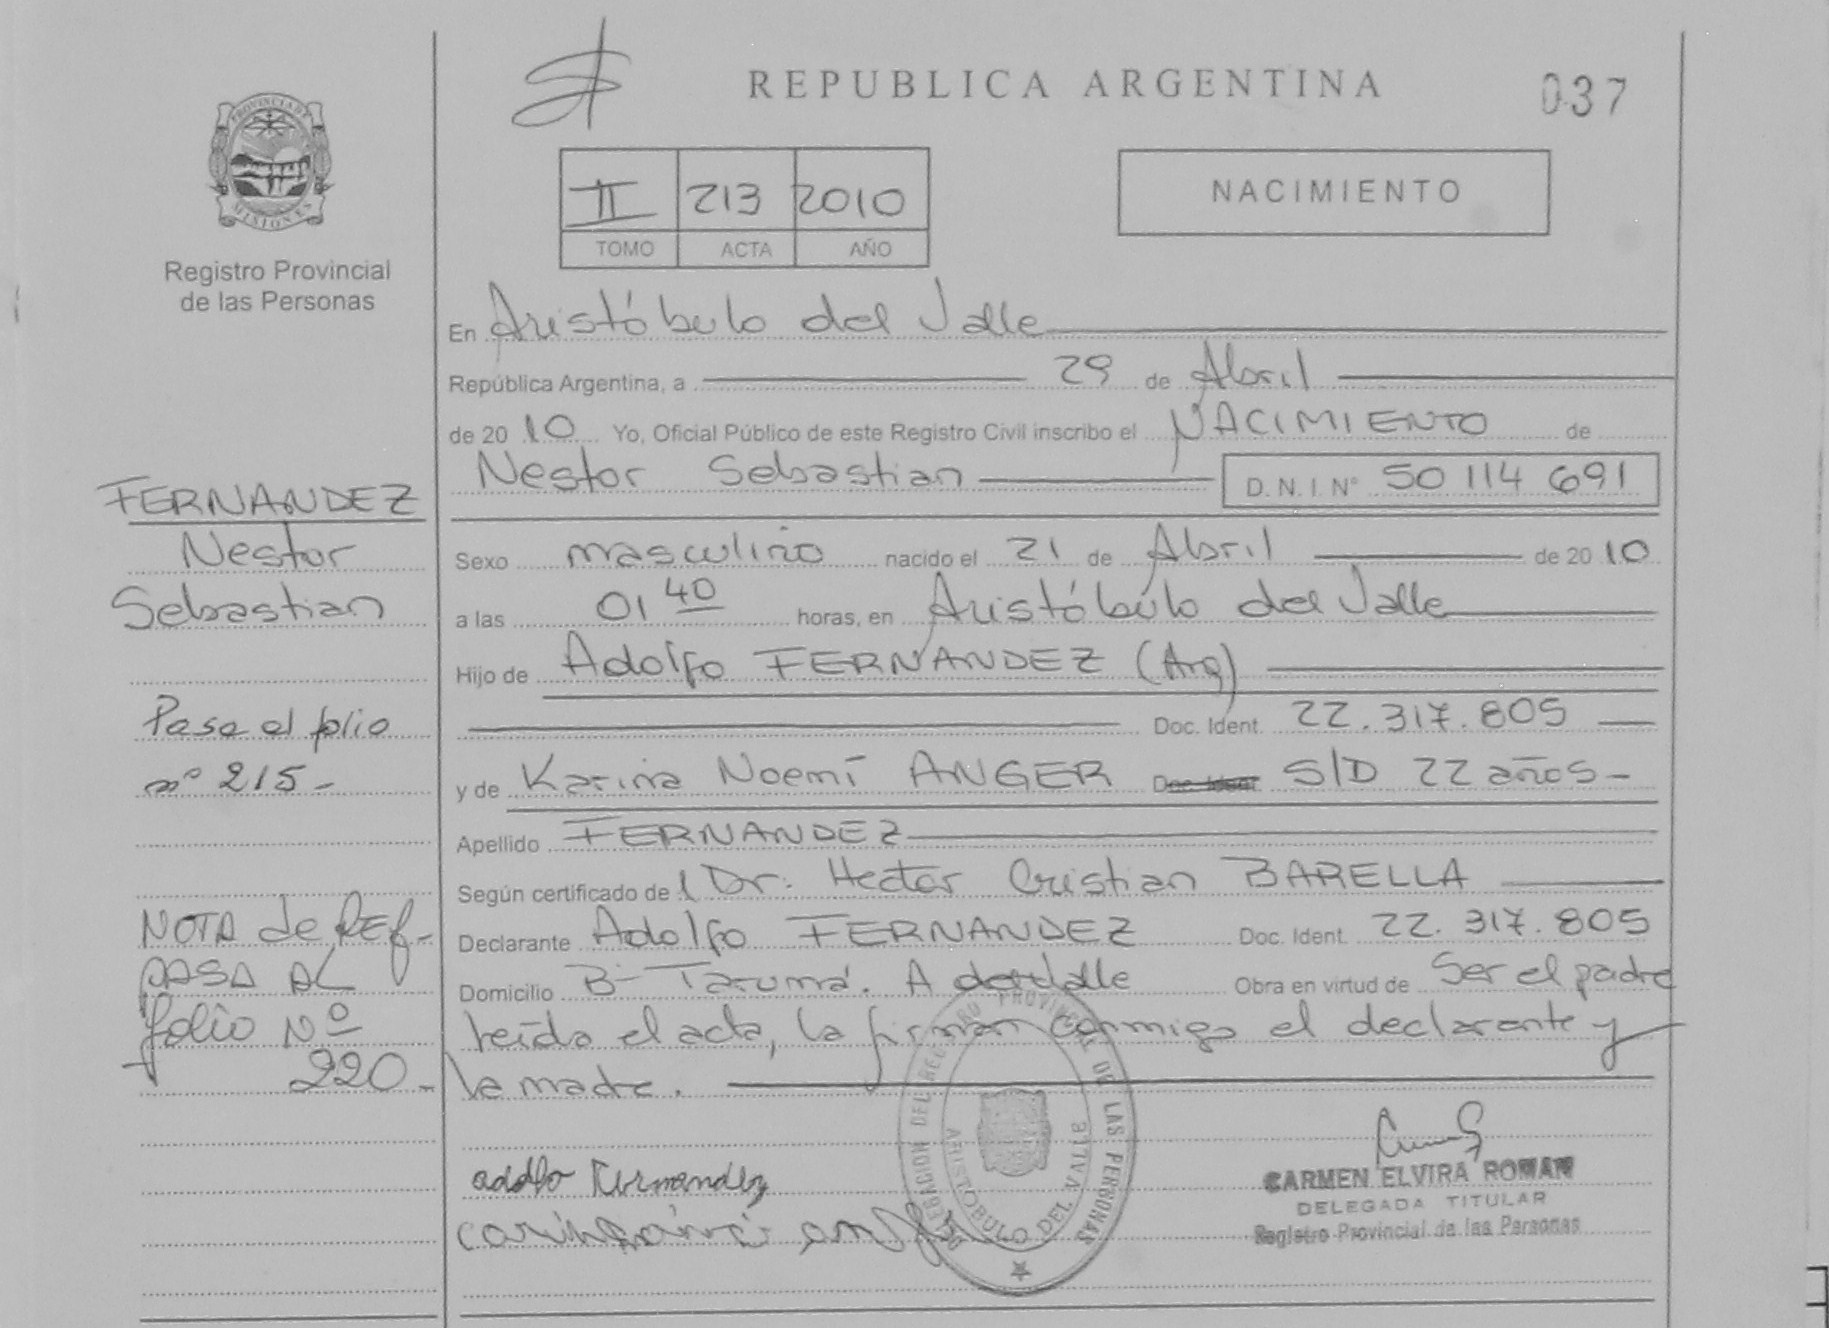 REPUBLICA ARGENTINA
037
PROVINCIA DE
MISIONES
Registro Provincial
de las Personas
II 213 2010
TOMO ACTA AÑO
NACIMIENTO
En Aristóbulo del Valle
República Argentina, a 29 de Abril
de 2010 Yo, Oficial Público de este Registro Civil inscribo el NACIMIENTO de
Nestor Sebastian D.N.I. N° 50 114 691
FERNANDEZ
Nestor
Sebastian
Sexo masculino nacido el 21 de Abril de 2010
a las 01 40 horas, en Aristóbulo del Valle
Hijo de Adolfo FERNANDEZ (Arg)
Doc. Ident. 22.317.805
y de Karina Noemí ANGER Doc. Ident S/D 22 años
Apellido FERNANDEZ
Según certificado del Dr. Hector Cristian BARELLA
Declarante Adolfo FERNANDEZ Doc. Ident. 22.317.805
Domicilio B- Tarumá. A del Valle Obra en virtud de Ser el padre
leída el acta, la firman conmigo el declarante y
la madre.
Pasa al folio
nº 215-
NOTA de REF-
PASA AL
folio Nº
220-
Adolfo Fernandez
DELEGACION DEL REGISTRO PROVINCIAL DE LAS PERSONAS
ARISTOBULO DEL VALLE
CARMEN ELVIRA ROMAN
DELEGADA TITULAR
Registro Provincial de las Personas